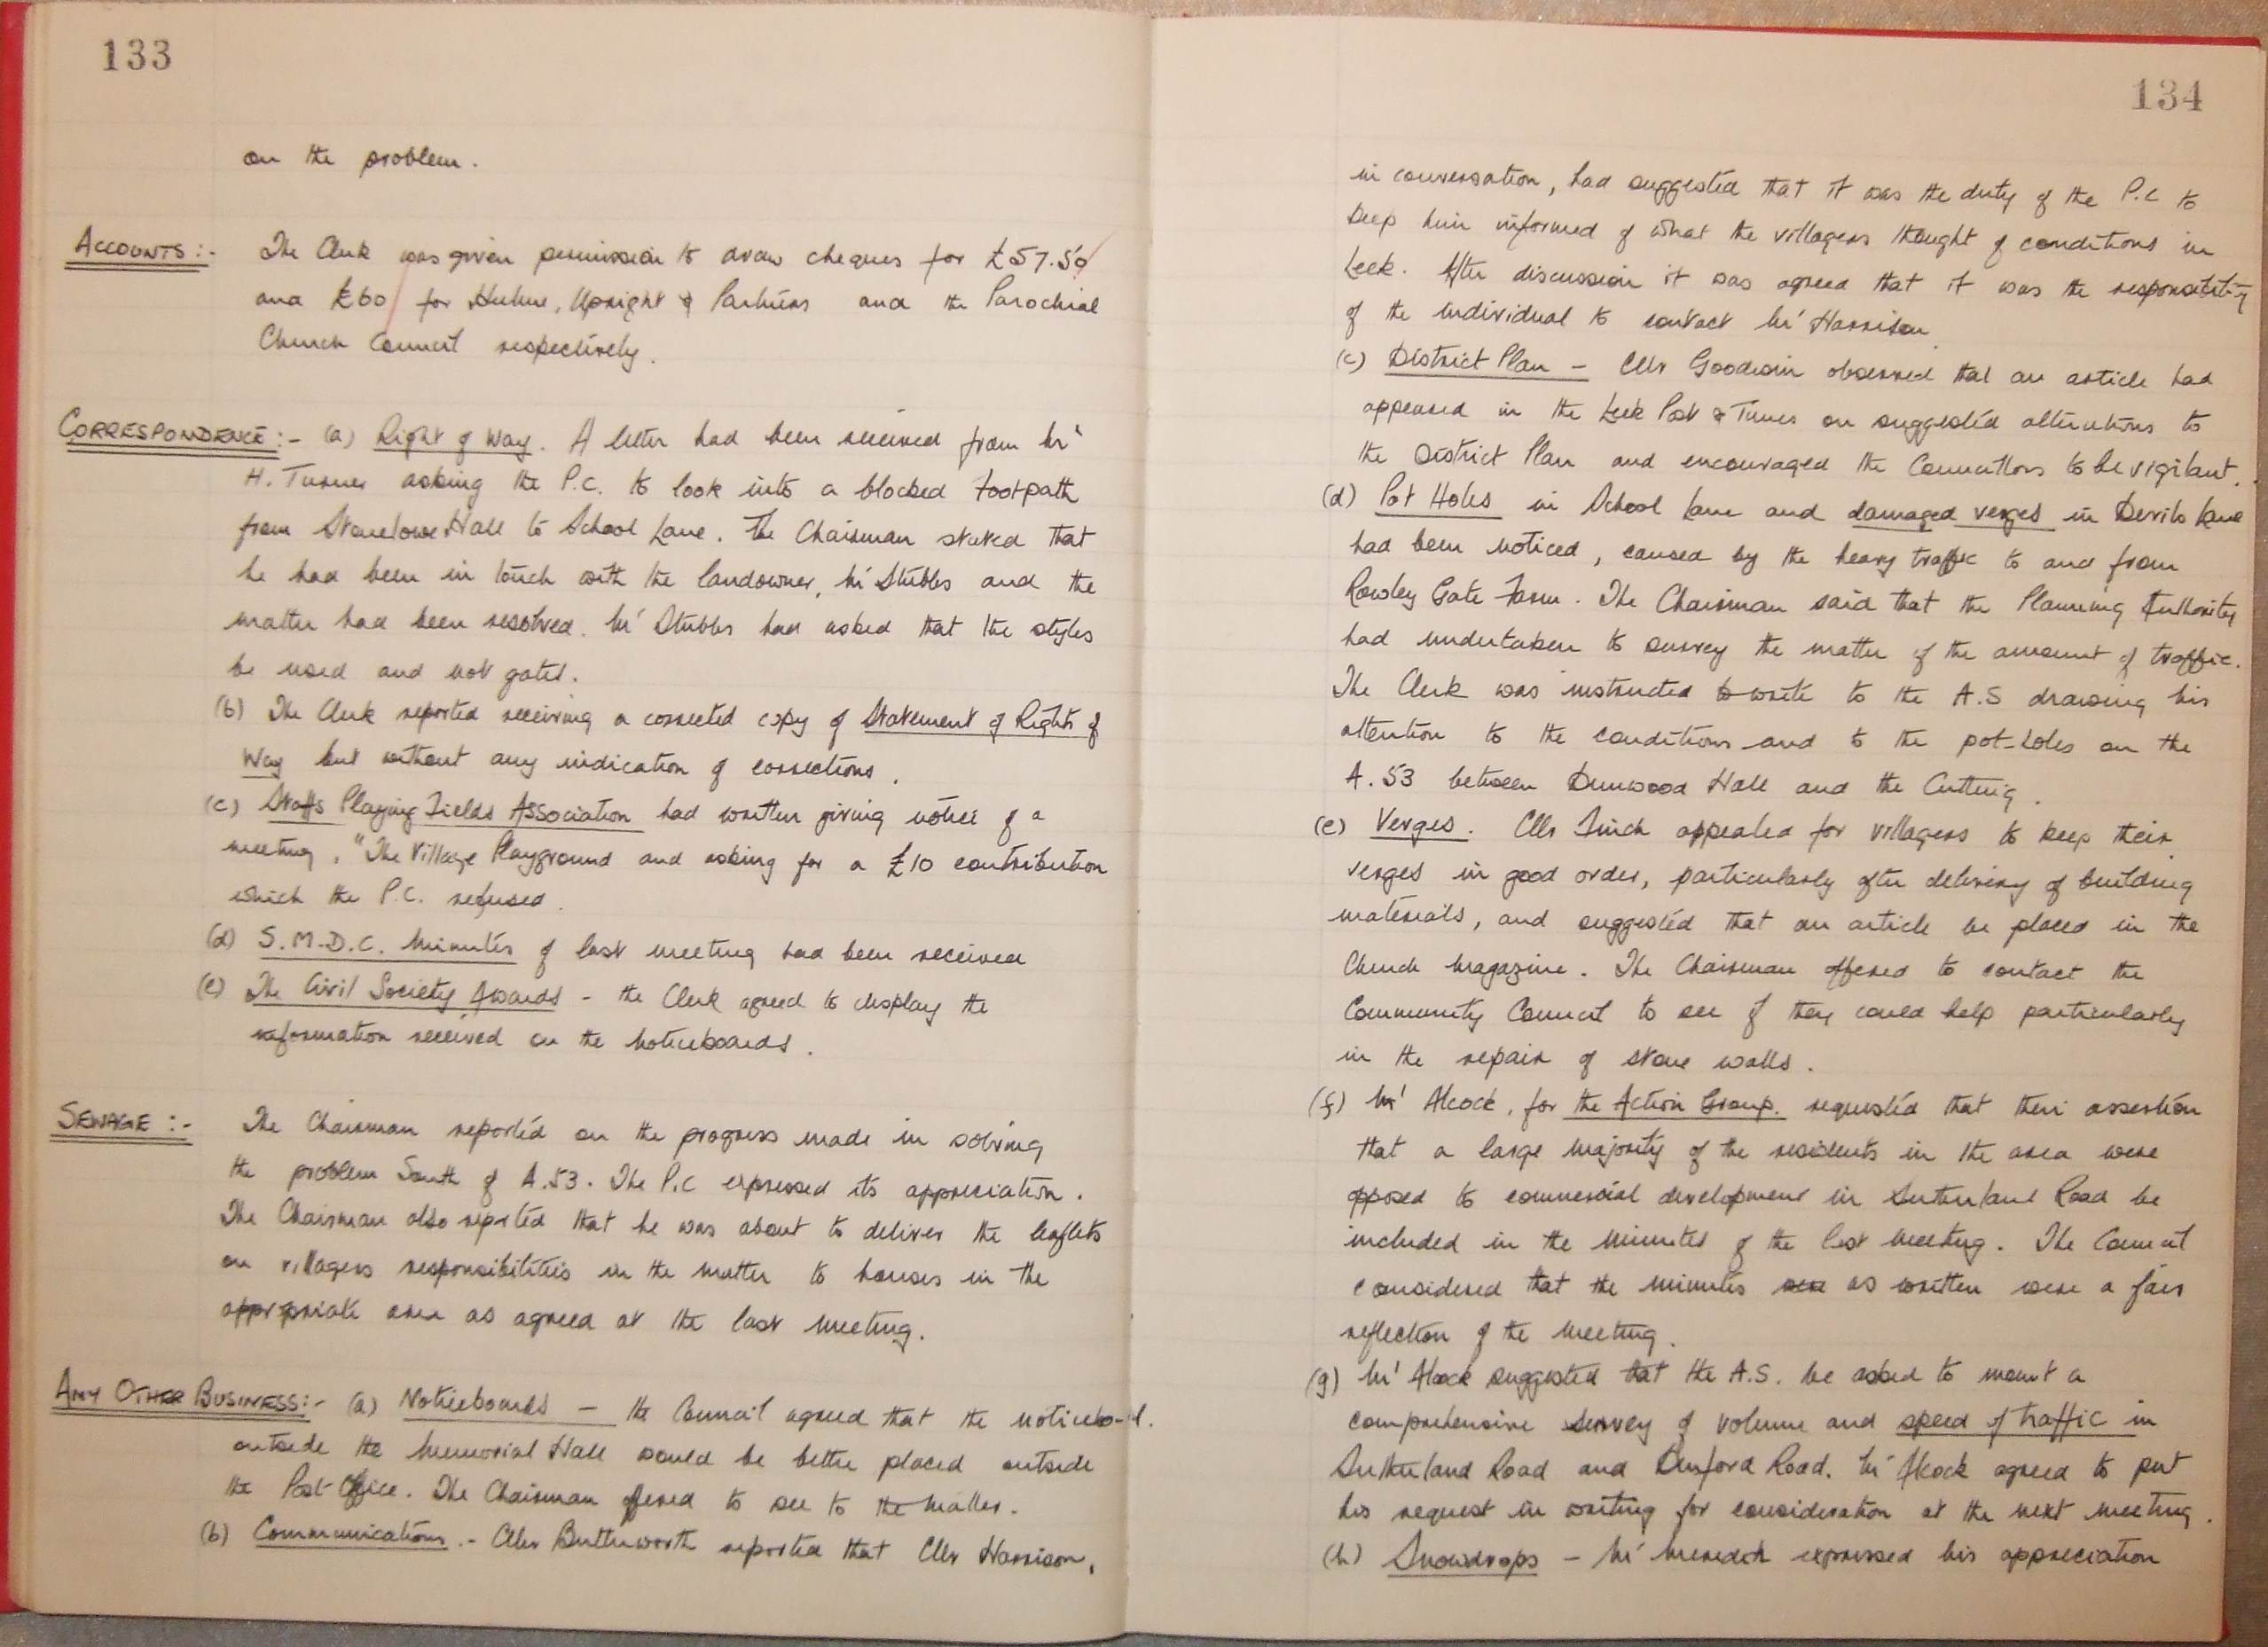 133
on the problem.
ACCOUNTS :- The Clerk was given permission to draw cheques for £57.50
and £60 for Hulme, Upright & Partners and the Parochial
Church Council respectively.
CORRESPONDENCE :- (a) Right of Way. A letter had been received from Mr
H. Turner asking the P.C. to look into a blocked footpath
from Stonelowe Hall to School Lane. The Chairman stated that
he had been in touch with the landowner, Mr Stubbs and the
matter had been resolved. Mr Stubbs had asked that the styles
be used and not gates.
(b) The Clerk reported receiving a corrected copy of Statement of Rights of
Way but without any indication of corrections.
(c) Staffs Playing Fields Association had written giving notice of a
meeting, "The Village Playground and asking for a £10 contribution
which the P.C. refused.
(d) S.M.D.C. Minutes of last meeting had been received
(e) The Civil Society Awards - the Clerk agreed to display the
information received on the noticeboards.
SEWAGE :- The Chairman reported on the progress made in solving
the problem South of A.53. The P.C expressed its appreciation.
The Chairman also reported that he was about to deliver the leaflets
on villagers responsibilities in the matter to houses in the
appropriate area as agreed at the last meeting.
ANY OTHER BUSINESS:- (a) Noticeboards - the Council agreed that the
outside the Memorial Hall would be better placed outside
the Post Office. The Chairman offered to see to the matter.
(b) Communications. - Cllr Butterworth reported that Cllr Harrison,
134
in conversation, had suggested that it was the duty of the P.C to
keep him informed of what the villagers thought of conditions in
Leek. After discussion it was agreed that it was the responsibility
of the individual to contact Mr Harrison.
(c) District Plan - Cllr Goodwin observed that an article had
appeared in the Leek Post & Times on suggested alterations to
the District Plan and encouraged the Councillors to be vigilant.
(d) Pot Holes in School Lane and damaged verges in Devils Lane
had been noticed, caused by the heavy traffic to and from
Rowley Gate Farm. The Chairman said that the Planning Authority
had undertaken to survey the matter of the amount of traffic.
The Clerk was instructed to write to the A.S drawing his
attention to the conditions and to the pot-holes on the
A.53 between Dunwood Hall and the Cutting.
(e) Verges. Cllr Finch appealed for villagers to keep their
verges in good order, particularly after delivery of building
materials, and suggested that an article be placed in the
Church Magazine. The Chairman offered to contact the
Community Council to see if they could help particularly
in the repair of stone walls.
(f) Mr Alcock, for the Action Group. requested that their assertion
that a large majority of the residents in the area were
opposed to commercial development in Sutherland Road be
included in the minutes of the last meeting. The Council
considered that the minutes as written were a fair
reflection of the meeting.
(g) Mr Alcock suggested that the A.S. be asked to mount a
comprehensive survey of volume and speed of traffic in
Sutherland Road and Road. Mr Alcock agreed to put
his request in writing for consideration at the next meeting.
(h) Snowdrops - Mr Meredith expressed his appreciation